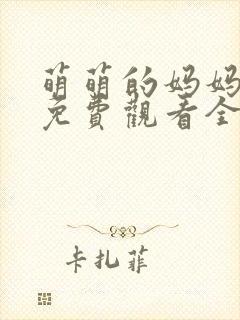 萌萌的妈妈
免費觀看全
卡扎菲